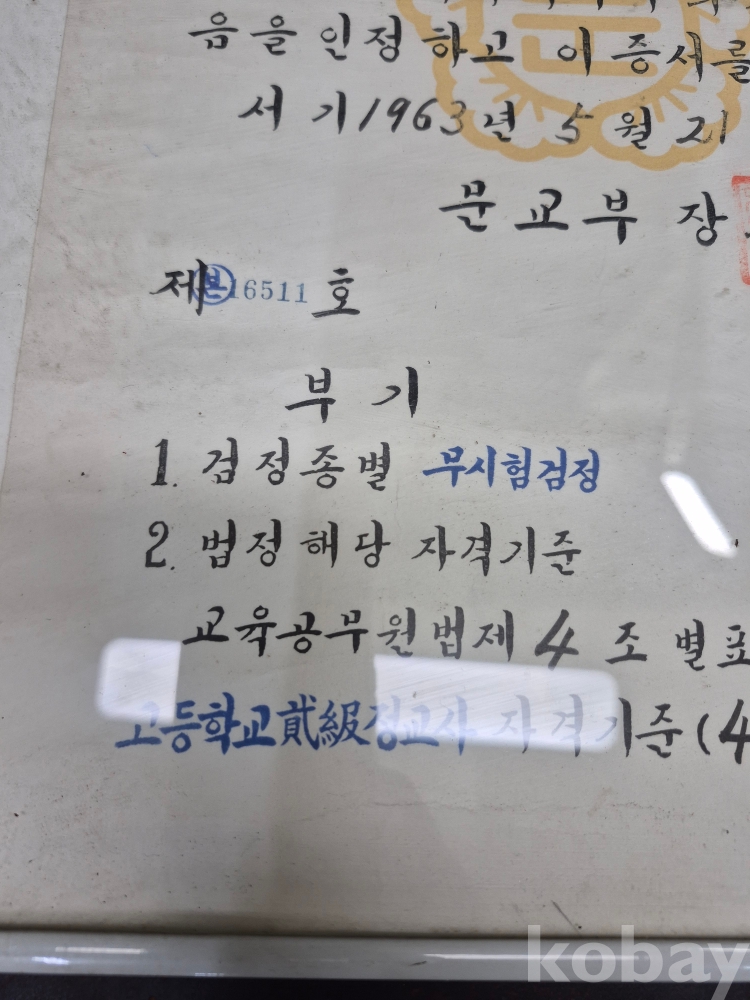 음을 인정하고 이 증서를
서기 1963년 5월 21
문교부 장
제 16511 호
부기
1. 검정종별 무시험검정
2. 법정해당 자격기준
교육공무원법제 4 조 별표
고등학교貳級정교사 자격기준 (4
kobay